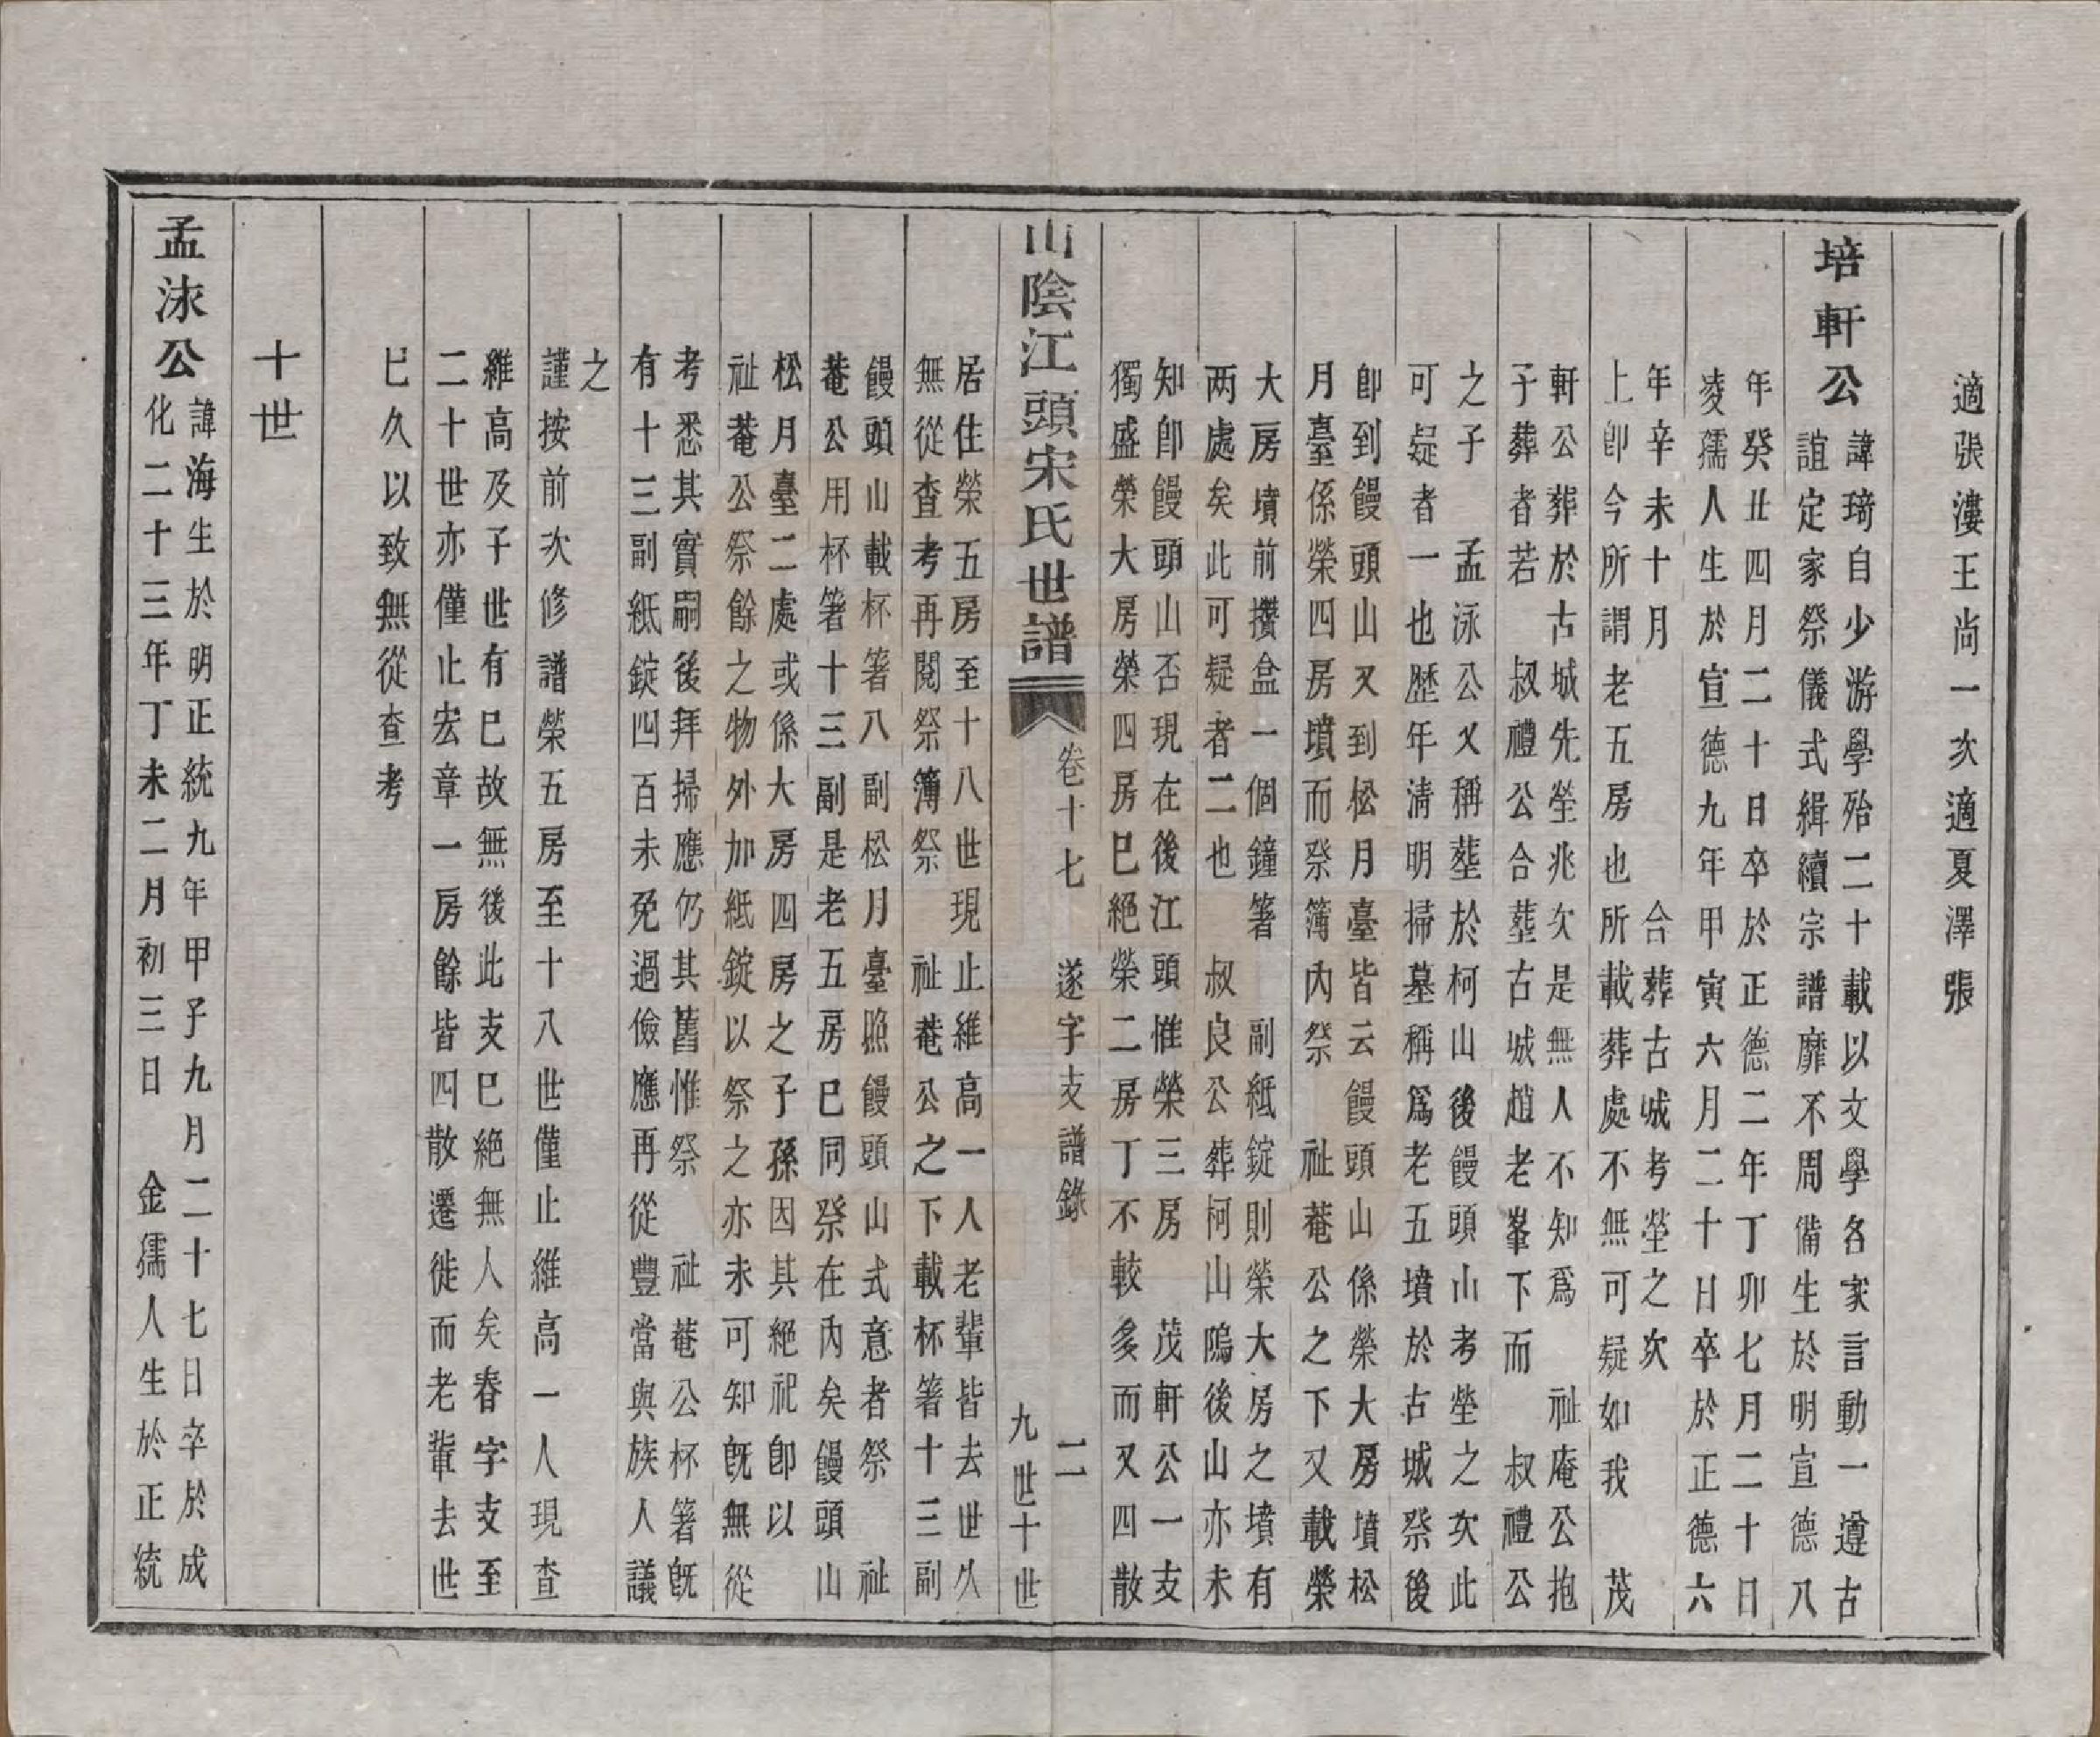 適張漊王尚一次適夏澤張
培軒公
諱琦自少游學殆二十載以文學各家言動一遵古
誼定家祭儀式緝續宗譜靡不周備生於明宣德八
年癸丑四月二十日卒於正德二年丁卯七月二十日
凌孺人生於宣德九年甲寅六月二十日卒於正德六
年辛未十月 合葬古城考塋之次
上卽今所謂老五房也所載葬處不無可疑如我 茂
軒公葬於古城先塋兆次是無人不知爲 祉庵公抱
子葬者若 叔禮公合塟古城趙老峯下而 叔禮公
之子 孟泳公又稱塟於柯山後饅頭山考塋之次此
可疑者一也歷年淸明掃墓稱爲老五墳於古城祭後
卽到饅頭山又到松月臺皆云饅頭山係榮大房墳松
月臺係榮四房墳而祭簿內祭 祉菴公之下又載榮
大房墳前攢盒一個鐘箸 副紙錠則榮大房之墳有
两處矣此可疑者二也 叔良公葬柯山隖後山亦未
知卽饅頭山否現在後江頭惟榮三房 茂軒公一支
獨盛榮大房榮四房巳絕榮二房丁不較多而又四散
山陰江頭宋氏世譜
卷十七 遂字支譜錄 二
九世十世
居住榮五房至十八世現止維高一人老輩皆去世久
無從查考再閱祭簿祭 祉菴公之下載杯箸十三副
饅頭山載杯箸八副松月臺照饅頭山式意者祭 祉
菴公用杯箸十三副是老五房巳同祭在內矣饅頭山
松月臺二處或係大房四房之子孫因其絕祀卽以
祉菴公祭餘之物外加紙錠以祭之亦未可知旣無從
考悉其實嗣後拜掃應仍其舊惟祭 祉菴公杯箸旣
有十三副紙錠四百未免過儉應再從豐當與族人議
之
謹按前次修譜榮五房至十八世僅止維高一人現查
維高及子世有巳故無後此支巳絕無人矣春字支至
二十世亦僅止宏章一房餘皆四散遷徙而老輩去世
巳久以致無從查考
十世
孟洙公
諱海生於明正統九年甲子九月二十七日卒於成
化二十三年丁未二月初三日 金孺人生於正統